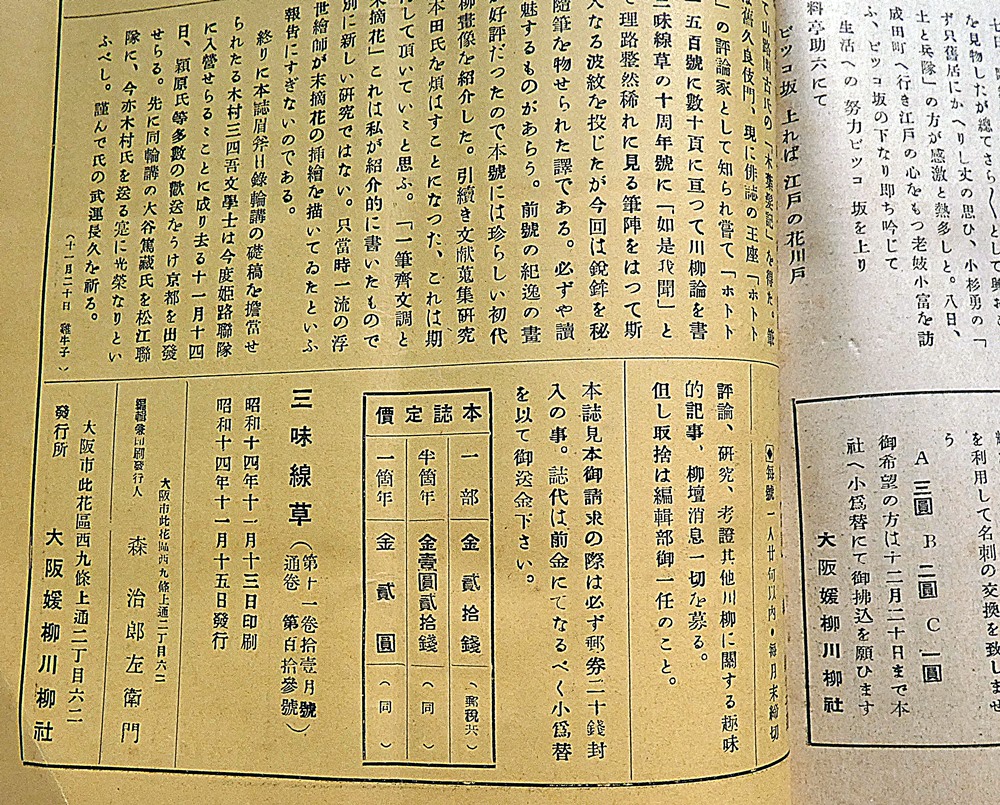 を見物したが總てさら〱として興
ず只舊居にかへりし丈の思ひ、小杉勇の「
土と兵隊」の方が感激と熱多しと。八日、
成田町へ行き江戸の心をもつ老妓小富を訪
ふ、ピツコ坂の下なり即ち吟じて
生活への 努力ピツコ 坂を上り
料亭助六にて
ピツコ坂 上れば 江戸の花川戸
を利用して名刺の交換を致しませ
う
A 三圓 B 二圓 C 一圓
御希望の方は十二月二十日まで本
社へ小爲替にて御拂込を願ひます
大阪媛柳川柳社
は舊久良伎門、現に俳誌の王座「ホトト
」の評論家として知られ嘗て「ホトト
五百號に數十頁に亘つて川柳論を書
三味線草の十周年號に「如是我聞」と
て理路整然稀れに見る筆陣をはつて斯
大なる波紋を投じたが今回は銳鋒を秘
隨筆を物せられた譯である。必ずや讀
魅するものがあらう。前號の紀逸の畫
好評だつたので本號には珍らしい初代
柳畫像を紹介した。引續き文献蒐集研究
本田氏を煩はすことになつた、これは期
して頂いていゝと思ふ。「一筆齊文調と
末摘花」これは私が紹介的に書いたもので
別に新しい研究ではない。只當時一流の浮
世繪師が末摘花の挿繪を描いてゐたといふ
報告にすぎないのである。
終りに本誌眉斧日錄輪講の礎稿を擔當せ
られたる木村三四吾文學士は今度姫路聯隊
に入營せらるゝことに成り去る十一月十四
日、穎原氏等多數の歡送をうけ京都を出發
せらる。先に同輪講の大谷篤藏氏を松江聯
隊に、今亦木村氏を送る寔に光榮なりとい
ふべし。謹んで氏の武運長久を祈る。
(十一月二十日 雞牛子)
◆每號一人廿句以内・每月末締切
評論、研究、考證其他川柳に關する趣味
的記事、柳壇消息一切を募る。
但し取捨は編輯部御一任のこと。
本誌見本御請求の際は必ず郵券二十錢封
入の事。誌代は前金にてなるべく小爲替
を以て御送金下さい。
本誌定價
一部 金貳拾錢 (郵税共)
半箇年 金壹圓貳拾錢 (同)
一箇年 金貳圓 (同)
三味線草 (第十一卷拾壹月號
通卷 第百拾參號)
昭和十四年十一月十三日印刷
昭和十四年十一月十五日發行
大阪市此花區西九條上通二丁目六二
編輯兼印刷發行人 森治郎左衛門
大阪市此花區西九條上通二丁目六二
發行所 大阪媛柳川柳社